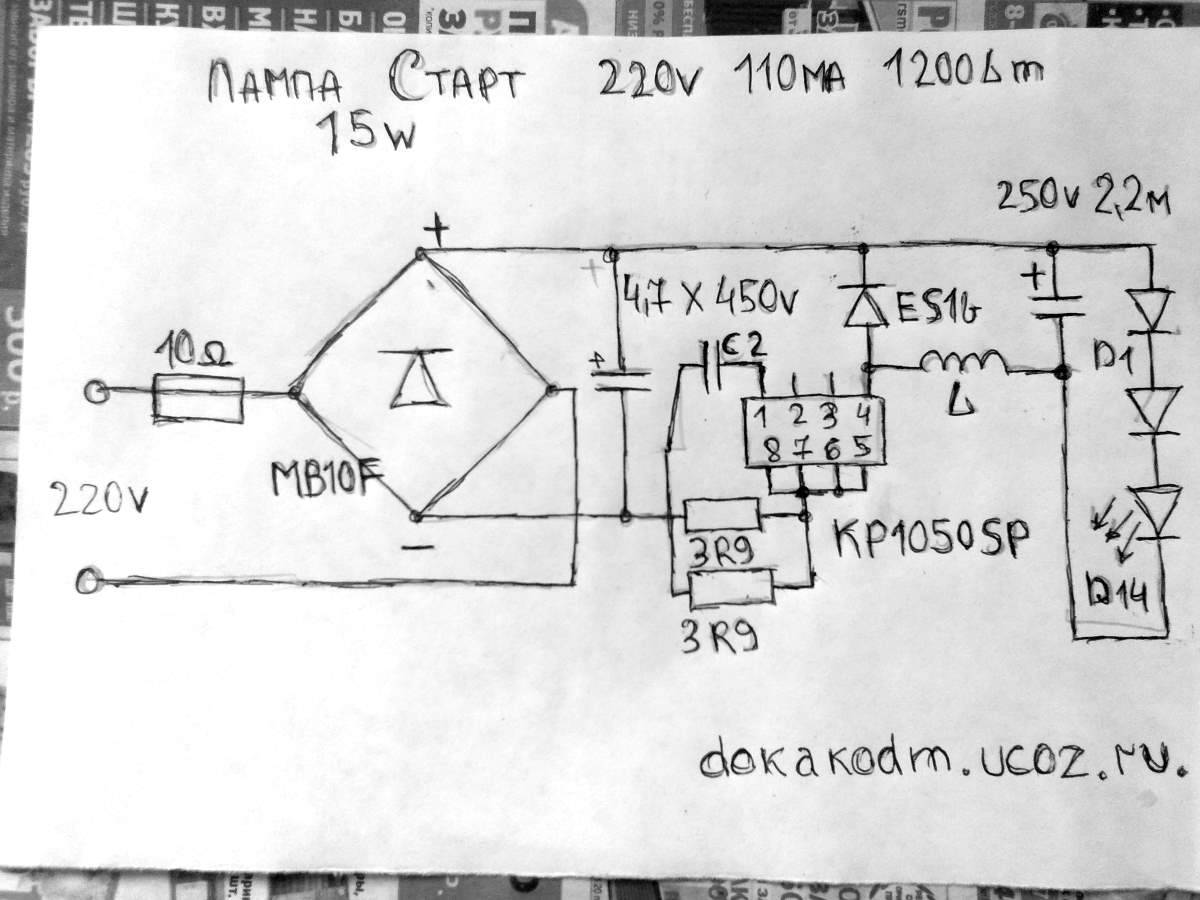 Лампа Старт 220v 110мА 1200Lm
15w
250v 2,2м
+
+
4,7 X 450v
+
ES1G
10Ω
+
C2
D1
L
1 2 3 4
8 7 6 5
MB10F
220v
KP1050SP
3R9
−
D14
3R9
dokakodm.ucoz.ru.